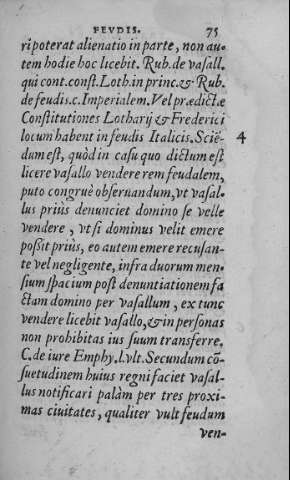 FEVDIS. 75
ri poterat alienatio in parte, non au-
tem hodie hoc licebit. Rub. de vasall.
qui cont. const. Loth. in princ. & Rub.
de feudis. c. Imperialem. Vel prædictæ
Constitutiones Lotharij & Frederici
locum habent in feudis Italicis. Sciē-
4
dum est, quòd in casu quo dictum est
licere vasallo vendere rem feudalem,
puto congruè obseruandum, vt vasal-
lus priùs denunciet domino se velle
vendere, vt si dominus velit emere
possit priùs, eo autem emere recusan-
te vel negligente, infra duorum men-
sium spacium post denuntiationem fa
ctam domino per vasallum, ex tunc
vendere licebit vasallo, & in personas
non prohibitas ius suum transferre.
C. de iure Emphy. l. vlt. Secundum cō-
suetudinem huius regni faciet vasal-
lus notificari palàm per tres proxi-
mas ciuitates, qualiter vult feudum
ven-